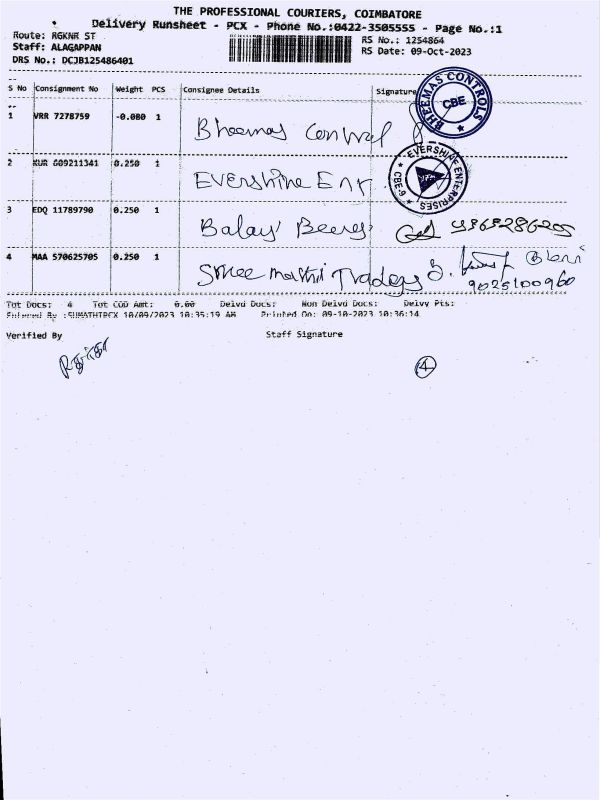 THE PROFESSIONAL COURIERS, COIMBATORE
Delivery Runsheet - PCX - Phone No.:0422-3505555 - Page No.:1
Route: RGKNR ST
RS No.: 1254864
Staff: ALAGAPPAN
RS Date: 09-Oct-2023
DRS No.: DCJB125486401
S No Consignment No Weight PCS Consignee Details Signature
1 VRR 7278759 -0.080 1 Bheemas Control
BHEEMAS CONTROLS
CBE
2 KUR 609211341 0.250 1 Evershine Ent
EVERSHINE ENTERPRISES
CBE-6
3 EDQ 11789790 0.250 1 Balaji
4 MAA 570625705 0.250 1 Shree Traders
9025100960
Tot Docs: 4 Tot COD Amt: 0.00 Delvd Docs: Non Delvd Docs: Delvy Pts:
Entered By :SUMATHIPCX 10/09/2023 10:35:19 AM Printed On: 09-10-2023 10:36:14
Verified By Staff Signature
4